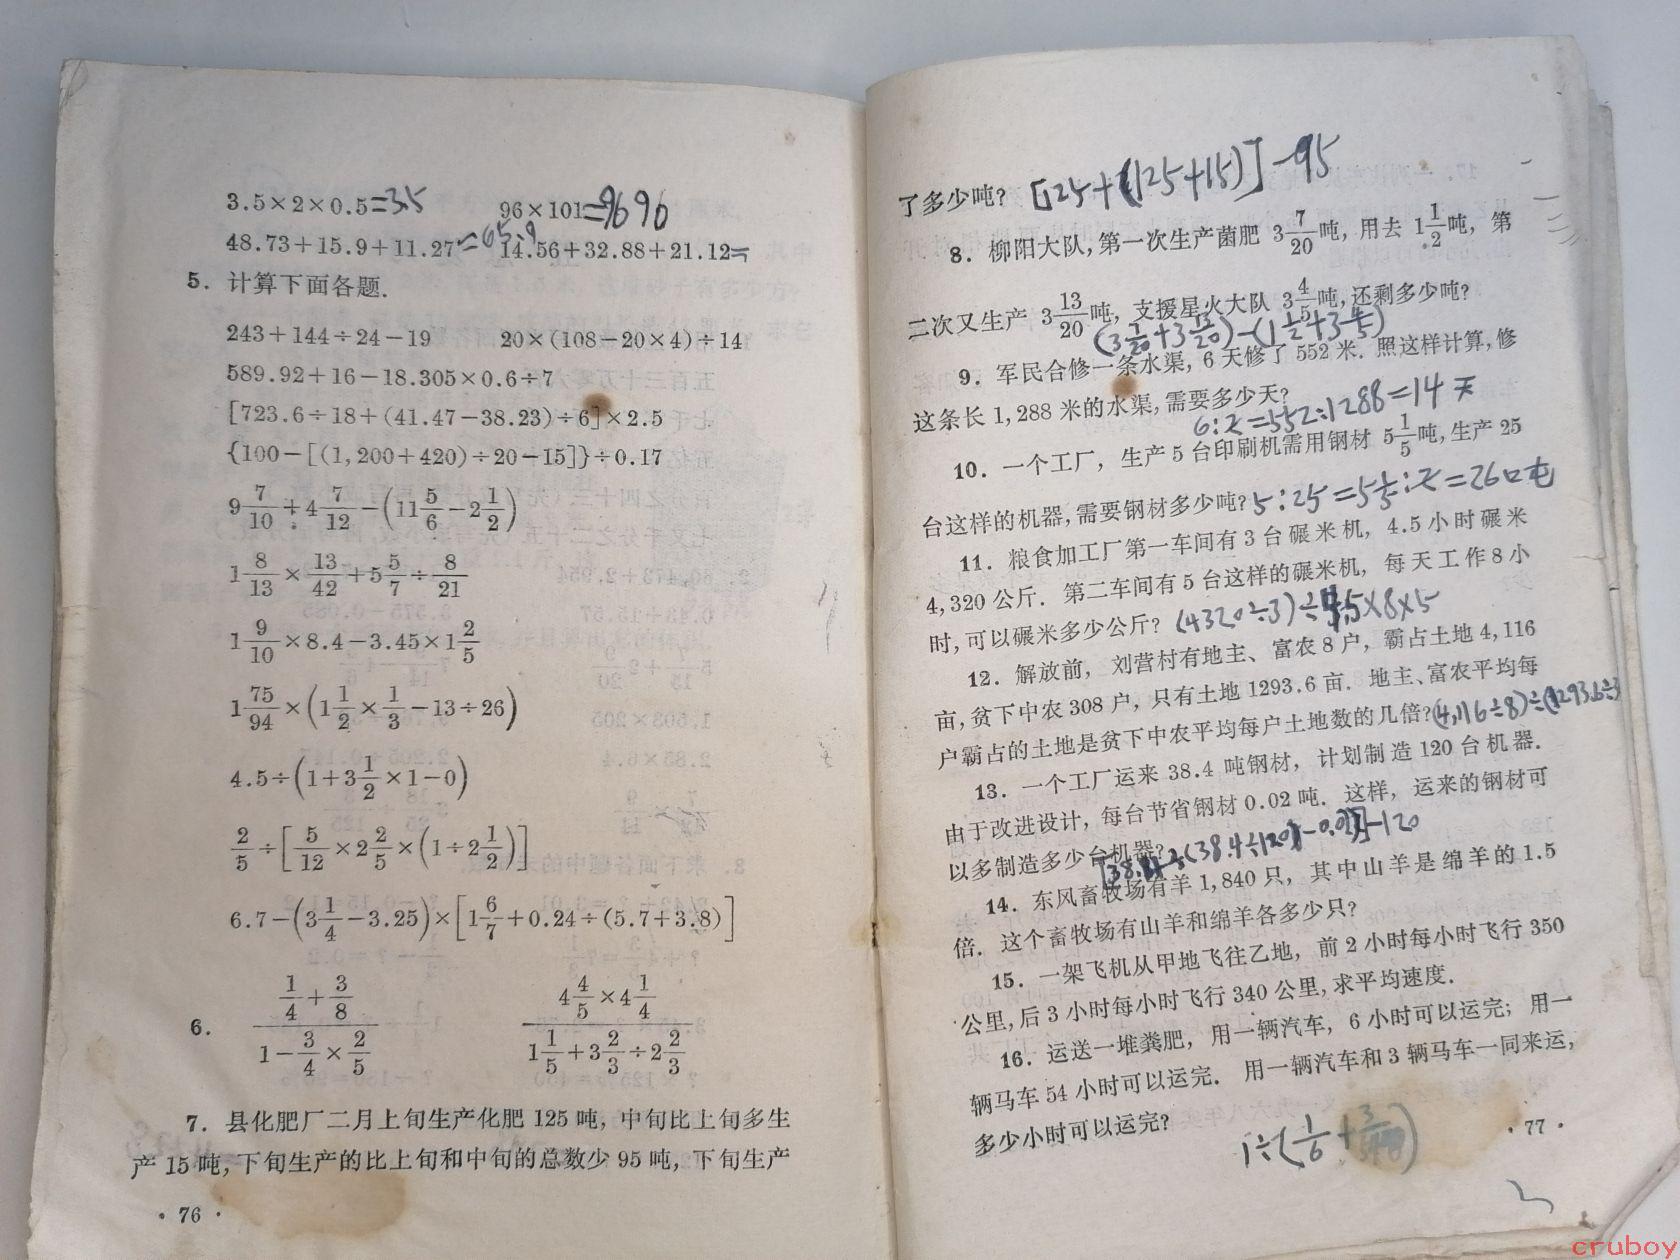 3.5×2×0.5=3.5 96×101=9696
48.73+15.9+11.27=65.9 14.56+32.88+21.12=
5. 计算下面各题.
243+144÷24-19 20×(108-20×4)÷14
589.92+16-18.305×0.6÷7
[723.6÷18+(41.47-38.23)÷6]×2.5
{100-[(1,200+420)÷20-15]}÷0.17
9 7/10+4 7/12-(11 5/6-2 1/2)
1 8/13×13/42+5 5/7÷8/21
1 9/10×8.4-3.45×1 2/5
1 75/94×(1 1/2×1/3-13÷26)
4.5÷(1+3 1/2×1-0)
2/5÷[5/12×2 2/5×(1÷2 1/2)]
6.7-(3 1/4-3.25)×[1 6/7+0.24÷(5.7+3.8)]
6. (1/4+3/8)/(1-3/4×2/5) (4 4/5×4 1/4)/(1 1/5+3 2/3÷2 2/3)
7. 县化肥厂二月上旬生产化肥 125 吨, 中旬比上旬多生
产 15 吨, 下旬生产的比上旬和中旬的总数少 95 吨, 下旬生产
· 76 ·
了多少吨? [125+(125+15)]-95
8. 柳阳大队, 第一次生产菌肥 3 7/20 吨, 用去 1 1/2 吨, 第
二次又生产 3 13/20 吨, 支援星火大队 3 4/5 吨, 还剩多少吨?
9. 军民合修一条水渠, 6 天修了 552 米. 照这样计算, 修
这条长 1,288 米的水渠, 需要多少天?
6:x=552:1288=14天
10. 一个工厂, 生产 5 台印刷机需用钢材 5 1/5 吨, 生产 25
台这样的机器, 需要钢材多少吨? 5:25=5 1/5:x=26吨
11. 粮食加工厂第一车间有 3 台碾米机, 4.5 小时碾米
4,320 公斤. 第二车间有 5 台这样的碾米机, 每天工作 8 小
时, 可以碾米多少公斤? (4320÷3)÷4.5×8×5
12. 解放前, 刘营村有地主、富农 8 户, 霸占土地 4,116
亩, 贫下中农 308 户, 只有土地 1293.6 亩. 地主、富农平均每
户霸占的土地是贫下中农平均每户土地数的几倍? (4,116÷8)÷(1293.6÷3
13. 一个工厂运来 38.4 吨钢材, 计划制造 120 台机器.
由于改进设计, 每台节省钢材 0.02 吨. 这样, 运来的钢材可
以多制造多少台机器?
14. 东风畜牧场有羊 1,840 只, 其中山羊是绵羊的 1.5
倍. 这个畜牧场有山羊和绵羊各多少只?
15. 一架飞机从甲地飞往乙地, 前 2 小时每小时飞行 350
公里, 后 3 小时每小时飞行 340 公里, 求平均速度.
16. 运送一堆粪肥, 用一辆汽车, 6 小时可以运完; 用一
辆马车 54 小时可以运完. 用一辆汽车和 3 辆马车一同来运,
多少小时可以运完?
· 77 ·
cruboy